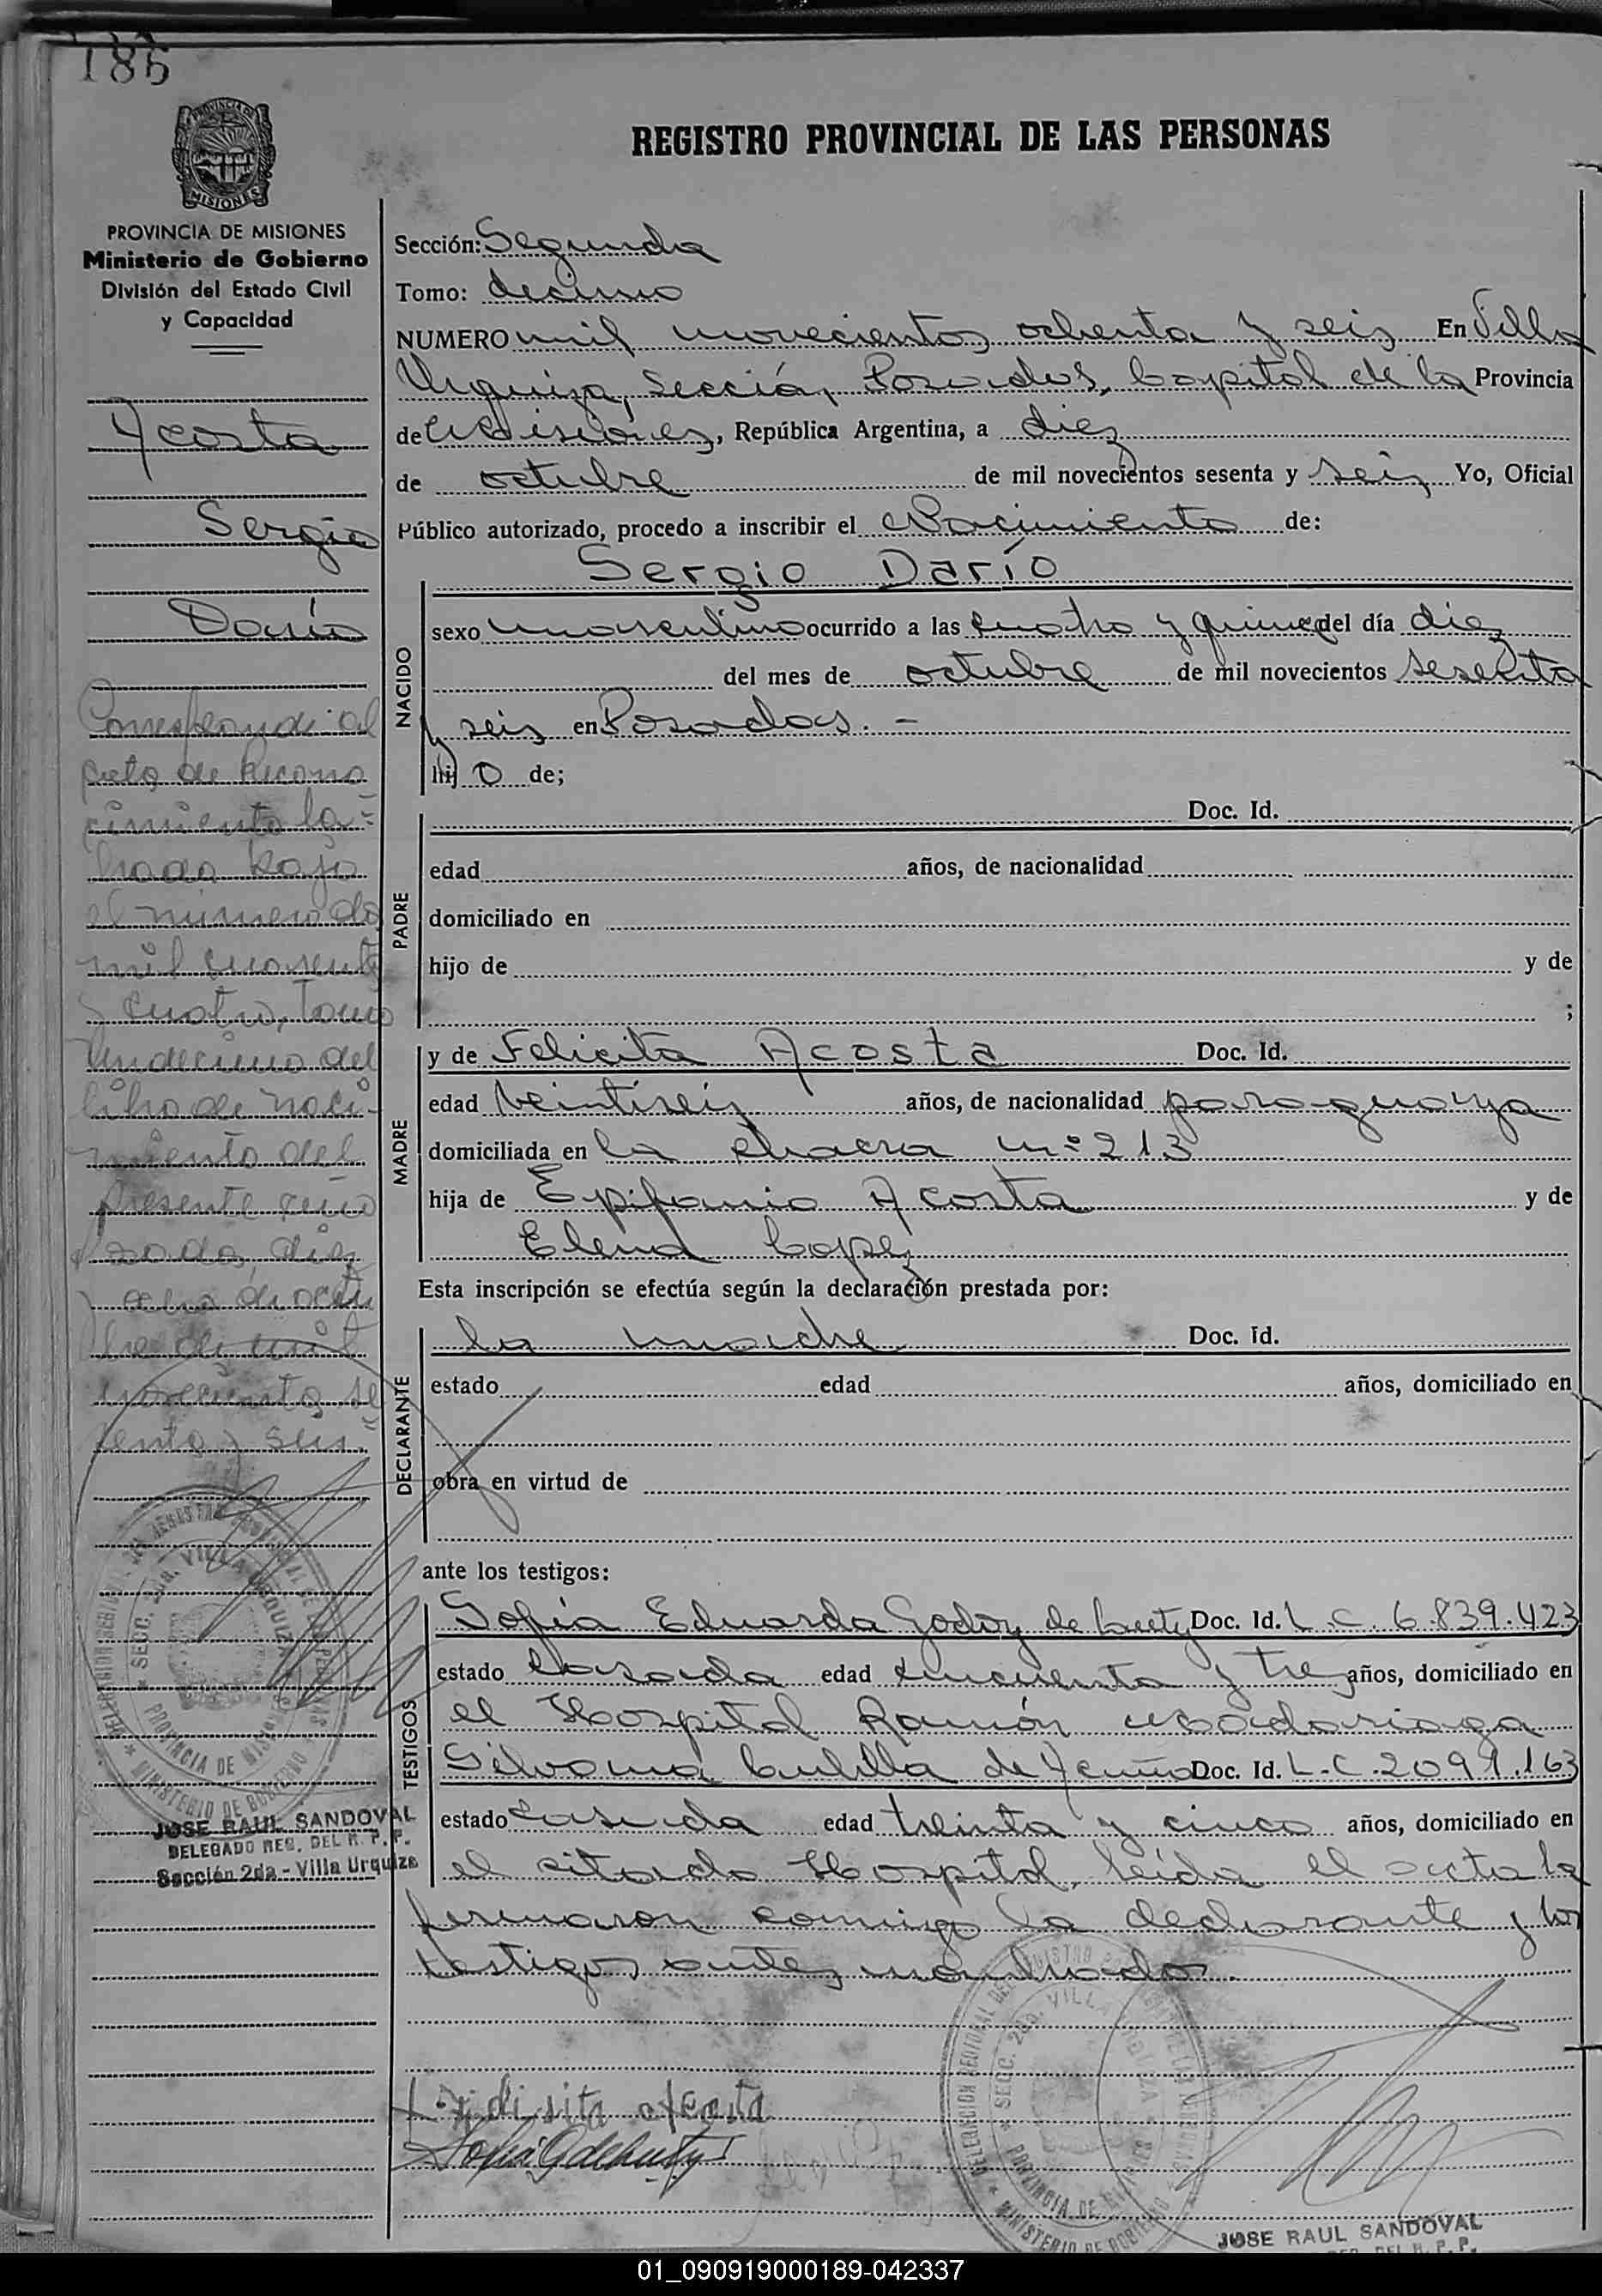 186
PROVINCIA DE
MISIONES
REGISTRO PROVINCIAL DE LAS PERSONAS
PROVINCIA DE MISIONES
Ministerio de Gobierno
División del Estado Civil
y Capacidad
Acosta
Sergio
Darío
Corresponde al
acta de Recono
cimiento la=
brada bajo
el número dos
mil cuarenta
y cuatro, tomo
Undecimo del
libro de naci-
miento del
presente año
Posadas, diez
y ocho de octu
bre de mil
novecientos se
senta y seis.
DELEGACION REGIONAL DEL REGISTRO PROVINCIAL DE LAS PERSONAS
SECC. 2da. VILLA URQUIZA
PROVINCIA DE MISIONES
MINISTERIO DE GOBIERNO
JOSE RAUL SANDOVAL
DELEGADO REG. DEL R. P. P.
Sección 2da - Villa Urquiza
Sección: Segunda
Tomo: decimo
NUMERO mil novecientos ochenta y seis En Villa
Urquiza, Sección Posadas, Capital de la Provincia
de Misiones, República Argentina, a diez
de octubre de mil novecientos sesenta y seis Yo, Oficial
Público autorizado, procedo a inscribir el Nacimiento de:
NACIDO
Sergio Darío
sexo masculino ocurrido a las cuatro y quince del día diez
del mes de octubre de mil novecientos sesenta
y seis en Posadas. -
hij o de;
PADRE
Doc. Id.
edad años, de nacionalidad
domiciliado en
hijo de y de
;
MADRE
y de Felicita Acosta Doc. Id.
edad veintiseis años, de nacionalidad paraguaya
domiciliada en la chacra nº 213
hija de Epifanio Acosta y de
Elena Lopez
Esta inscripción se efectúa según la declaración prestada por:
DECLARANTE
la madre Doc. Id.
estado edad años, domiciliado en
obra en virtud de
ante los testigos:
TESTIGOS
Sofía Eduarda Godoy de Doc. Id. L. C. 6.839.423
estado casada edad cincuenta y tres años, domiciliado en
el Hospital Ramón Madariaga
Silvana de Doc. Id. L.C. 2.099.163
estado casada edad treinta y cinco años, domiciliado en
el citado Hospital, leída el acta la
firmaron conmigo la declarante y los
testigos antes nombrados.
DELEGACION REGIONAL DEL REGISTRO PROVINCIAL DE LAS PERSONAS
SECC. 2da. VILLA URQUIZA
PROVINCIA DE MISIONES
MINISTERIO DE GOBIERNO
JOSE RAUL SANDOVAL
01_090919000189-042337